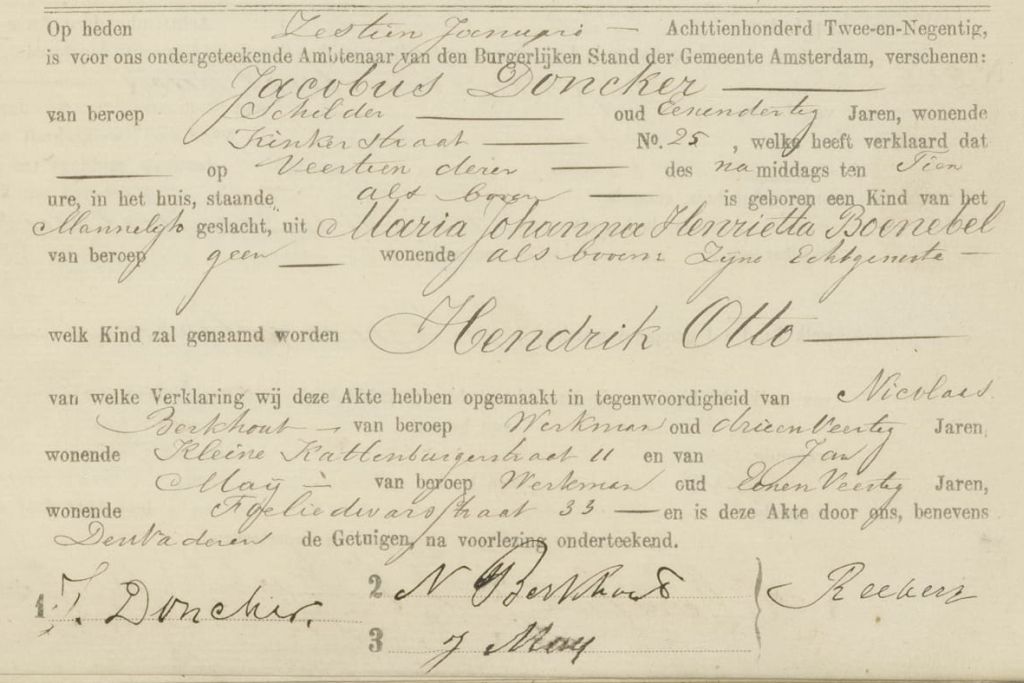 Op heden Zestien Januari Achttienhonderd Twee-en-Negentig,
is voor ons ondergeteekende Ambtenaar van den Burgerlijken Stand der Gemeente Amsterdam, verschenen:
Jacobus Doncker
van beroep Schilder oud Eenendertig Jaren, wonende
Kinkerstraat No. 25, welke heeft verklaard dat
op Veertien dezer des namiddags ten Tien
ure, in het huis, staande als boven is geboren een Kind van het
Mannelijk geslacht, uit Maria Johanna Henrietta Boenebel
van beroep geen wonende als boven Zijne Echtgenoote
welk Kind zal genaamd worden Hendrik Otto
van welke Verklaring wij deze Akte hebben opgemaakt in tegenwoordigheid van Nicolaas
Berkhout van beroep Werkman oud drieenVeertig Jaren,
wonende Kleine Kattenburgerstraat 11 en van Jan
May van beroep Werkman oud EenenVeertig Jaren,
wonende Foeliedwarsstraat 33 en is deze Akte door ons, benevens
Den Vader en de Getuigen, na voorlezing onderteekend.
1 J. Doncker.
2 N Berkhout
3 J May